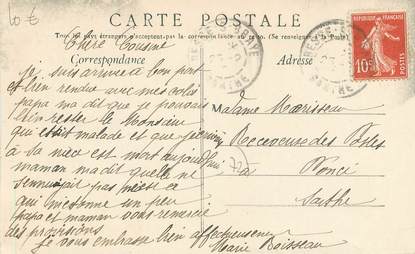 10 €
CARTE POSTALE
Tous les pays étrangers n'acceptent pas la correspondance au recto. (Se renseigner à la Poste)
Correspondance
Adresse
Chère Cousine
Je suis arrivée à bon port
et bien rendue avec mes colis
papa m'a dit que je pouvais
bien rester le Monsieur
qui était malade et que j'écrivais
à la nièce est mort aujourd'hui
maman m'a dit quelle ne
s'ennuyait pas
qui m'étonne un peu
papa et maman vous remercie
des provisions
je vous embrasse bien affectueusement
Marie Boisseau
Madame Morisseau
Receveuse des Postes
72 à
Poncé
Sarthe
RÉPUBLIQUE FRANÇAISE
10c
SARTHE